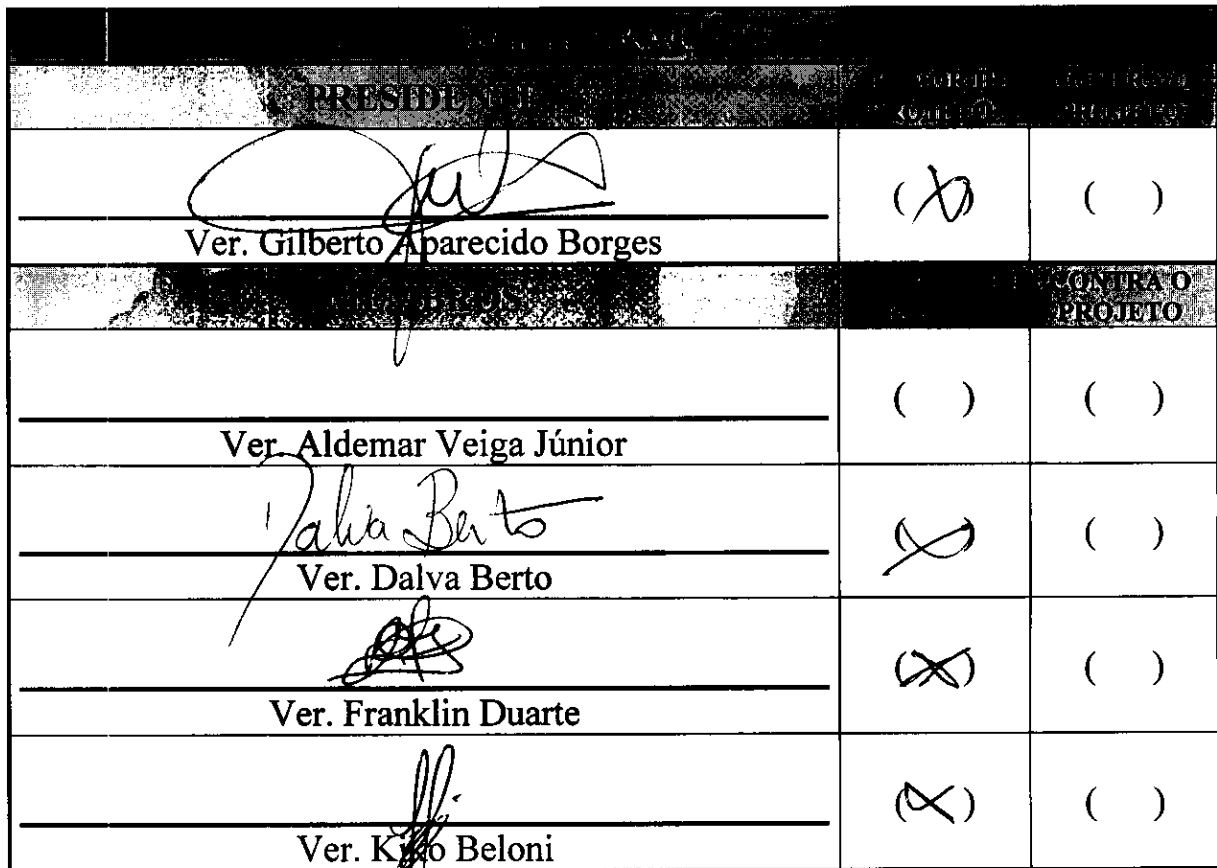 PRESIDENTE
( X ) ( )
Ver. Gilberto Aparecido Borges
MEMBROS CONTRA O
PROJETO
( ) ( )
Ver. Aldemar Veiga Júnior
Dalva Berto
( X ) ( )
Ver. Dalva Berto
( X ) ( )
Ver. Franklin Duarte
( X ) ( )
Ver. Kiko Beloni